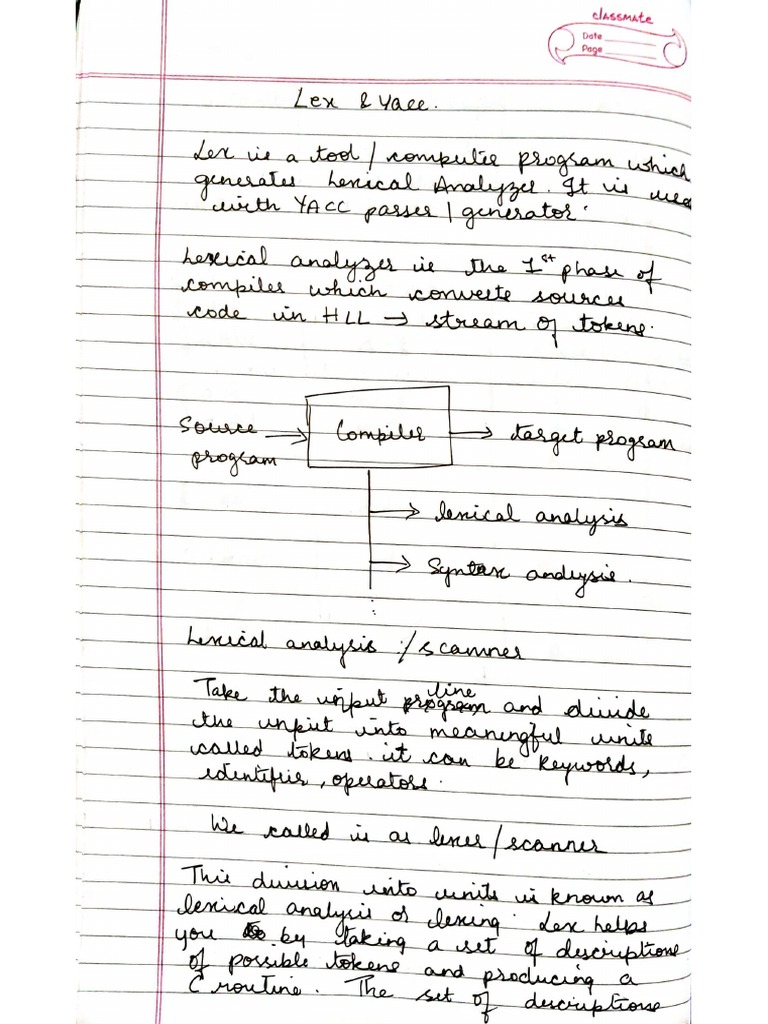 classmate
Date
Page
Lex & Yacc.
Lex is a tool / computer program which
generates Lexical Analyzer. It is used
with YACC parser / generator.
Lexical analyzer is the 1st phase of
compiler which converts sources
code in HLL → stream of tokens.
Source program → Compiler → target program
→ lexical analysis
→ Syntax analysis.
Lexical analysis :/ scanner
Take the input line and divide
the input into meaningful units
called tokens. it can be keywords,
identifier, operators.
We called is as lexer / scanner
This division into units is known as
lexical analysis or lexing. Lex helps
you by taking a set of descriptions
of possible tokens and producing a
C routine. The set of descriptions